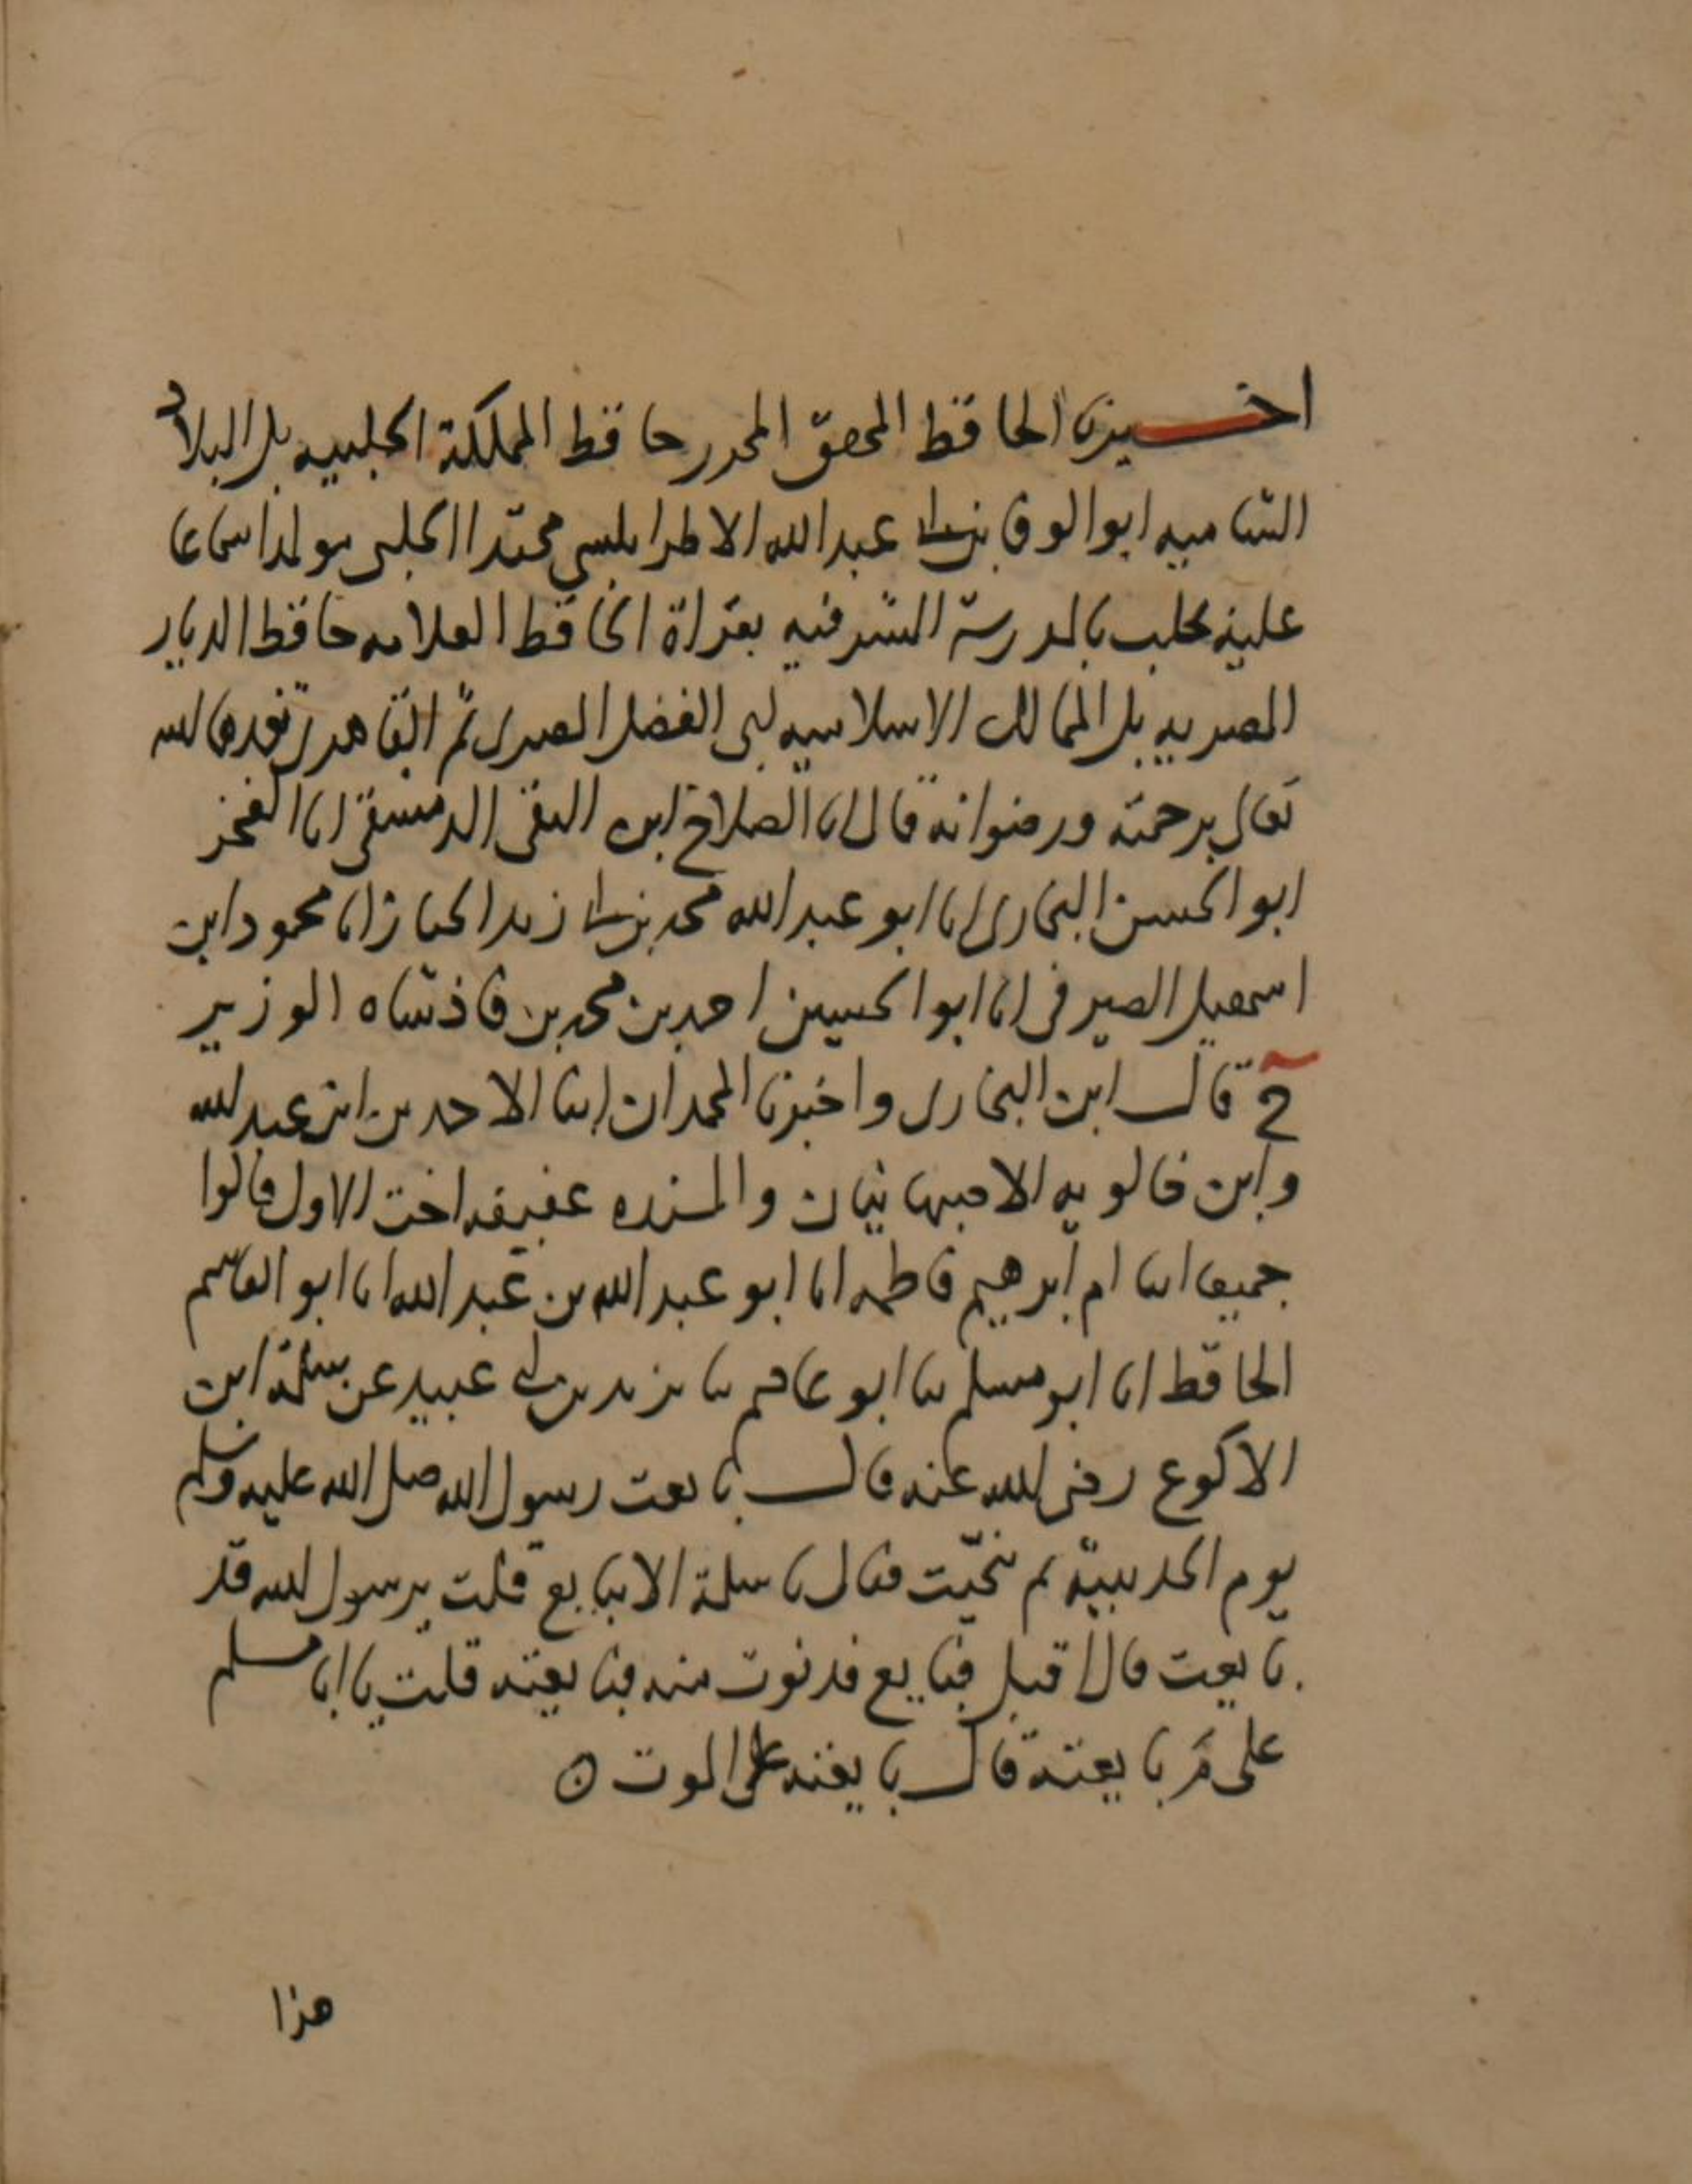 اخبرنا الحافظ المحقق المحرر حافظ المملكة الحلبيه بل البلاد
الشاميه ابو الوفا بن عبد الله الاطرابلسي محتدا الحلبي مولدا سماعا
عليه بحلب بالمدرسة الشرفيه بقراة الحافظ العلامه حافظ الديار
المصريه بل الممالك الاسلاميه ابى الفضل المصرى ثم القاهرى تغمدهما الله
تعالى برحمته ورضوانه قال انا الصلاح ابن التقى الدمشقى انا الفخر
ابو الحسن البخارى انا ابو عبد الله محمد بن زيد الخباز انا محمود ابن
اسمعيل الصيرفى انا ابو الحسين احمد بن محمد بن فاذشاه الوزير
ح قال ابن البخارى واخبرنا المحمدان ابنا الاحمدين ابن عبد الله
وابن خالويه الاصبهانيان والمسنده عفيفه اخت الاول قالوا
جميعا انبا ام ابرهيم فاطمه انا ابو عبد الله بن عبد الله انا ابو القاسم
الحافظ انا ابو مسلم ثنا ابو عاصم ثنا يزيد بن ابى عبيد عن سلمة ابن
الاكوع رضى الله عنه قال بايعت رسول الله صلى الله عليه وسلم
يوم الحديبية ثم تنحيت فقال يا سلمة الا تبايع قلت يرسول الله قد
بايعت قال اقبل فبايع فدنوت منه فبايعته قلت يا ابا مسلم
على مَ بايعته قال بايعته على الموت ○
هذا